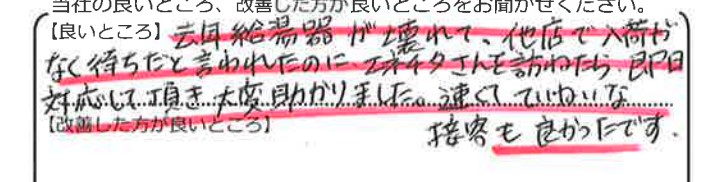 当社の良いところ、改善した方が良いところをお聞かせください。
【良いところ】去年給湯器が壊れて、他店で入荷が
なく待ちだと言われたのに、エネチタさんを訪ねたら、即日
対応して頂き大変助かりました。速くてていねいな
【改善した方が良いところ】
接客も良かったです.